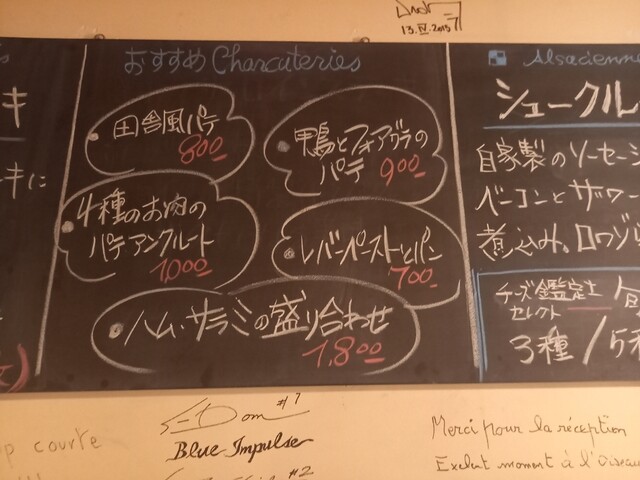 13.IV.2015
おすすめ Charcuteries
田舎風パテ
800
鴨とフォアグラの
パテ 900
4種のお肉の
パテアンクルート
1,000
レバーペーストとパン
700
ハム・サラミの盛り合わせ
1,800
キ
キに
Alsacienne
シュークル
自家製のソーセー
ベーコンとザワー
煮込み。
チーズ鑑定士
セレクト
3種 / 5種
courte
#7
Blue Impulse
#2
Merci pour la réception
moment à l'Oiseau